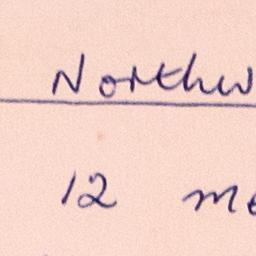 Northw
12 me